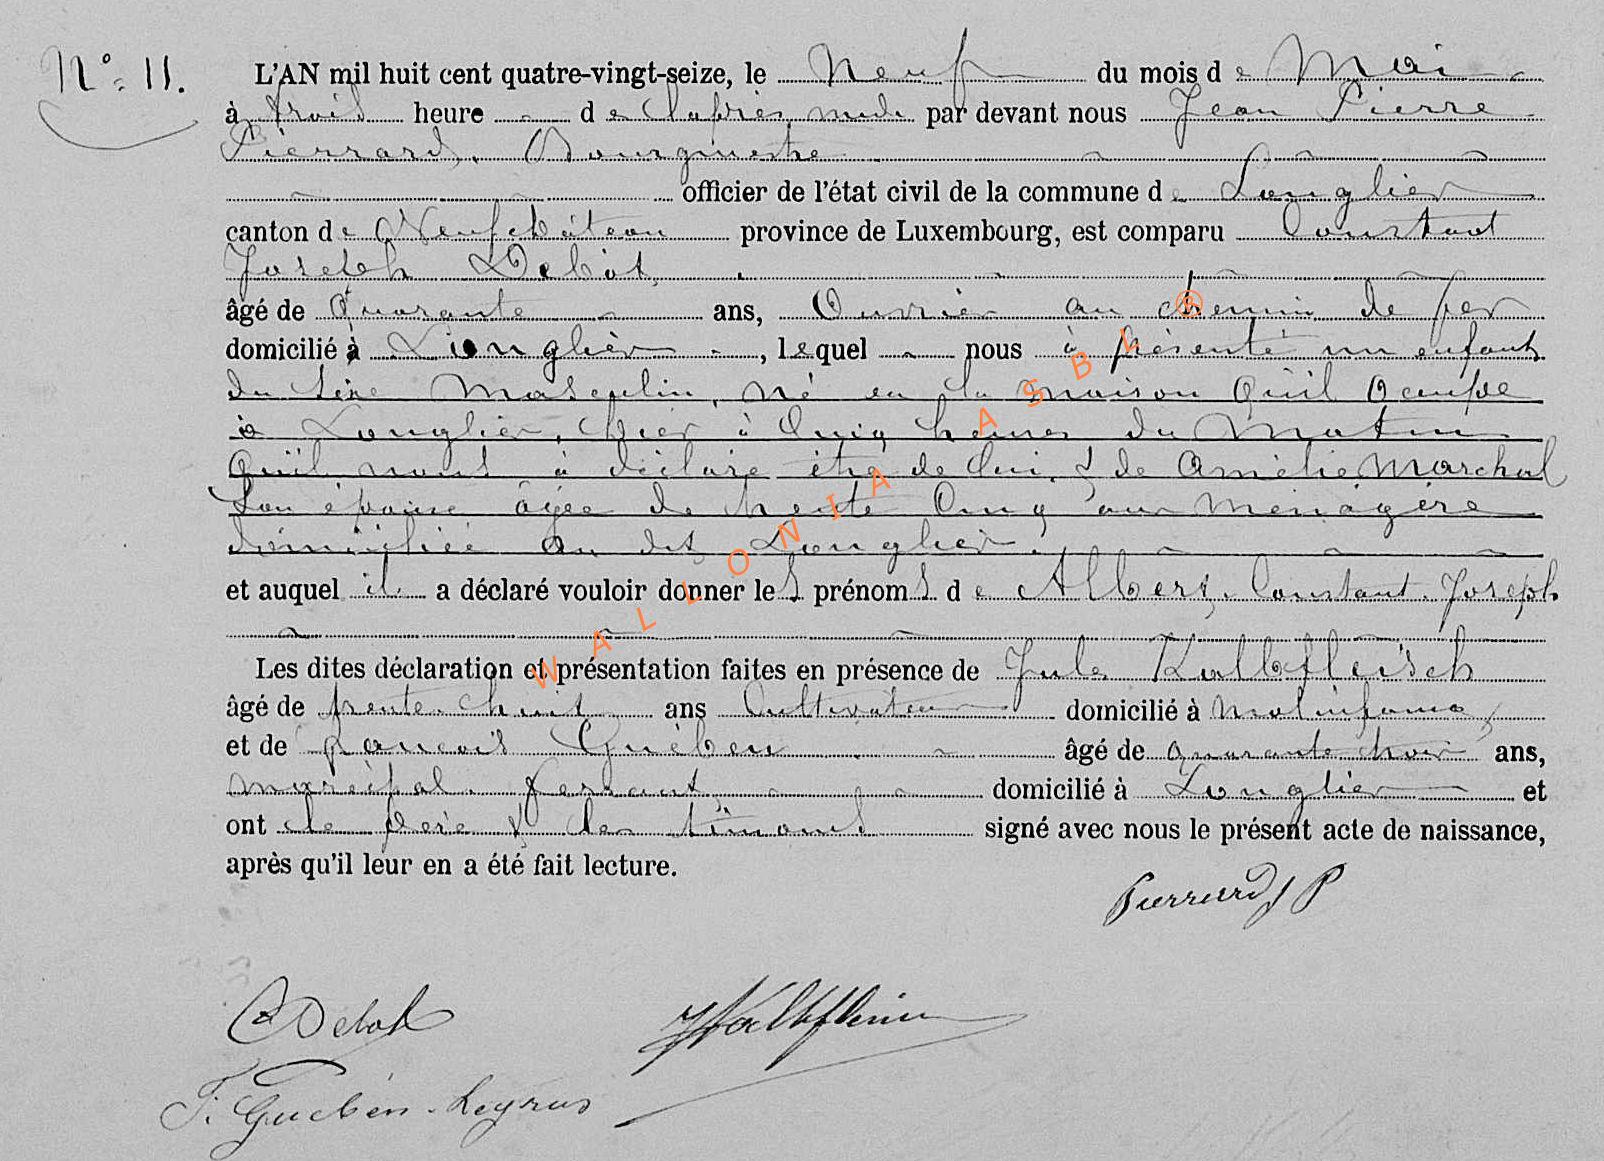 N° 11.
L'AN mil huit cent quatre-vingt-seize, le Neuf du mois de Mai
à trois heure de l'après midi par devant nous Jean Pierre
Pierrard, Bourgmestre
officier de l'état civil de la commune de Longlier
canton de Neufchâteau province de Luxembourg, est comparu Constant
Joseph Debot
âgé de Quarante ans, Ouvrier au chemin de fer
domicilié à Longlier, lequel nous à présenté un enfant
du sexe Masculin, né en la maison Qu'il Ocupe
à Longlier, hier à Cinq heures du Matin
Qu'il nous à déclaré être de lui & de Amélie Marchal
Son épouse âgée de trente Cinq ans Ménagère
domiciliée au dit Longlier.
et auquel il a déclaré vouloir donner les prénoms de Albert Constant Joseph
Les dites déclaration et présentation faites en présence de Jules Kalbfleisch
âgé de trente-huit ans Cultivateur domicilié à Molinfaing
et de François Guében âgé de quarante trois ans,
maréchal ferrant domicilié à Longlier et
ont le père & les témoins signé avec nous le présent acte de naissance,
après qu'il leur en a été fait lecture.
Pierrard J P
C Debot
J Kalbfleisch
F. Guében-Leyrus
WALLONIA ASBL ®